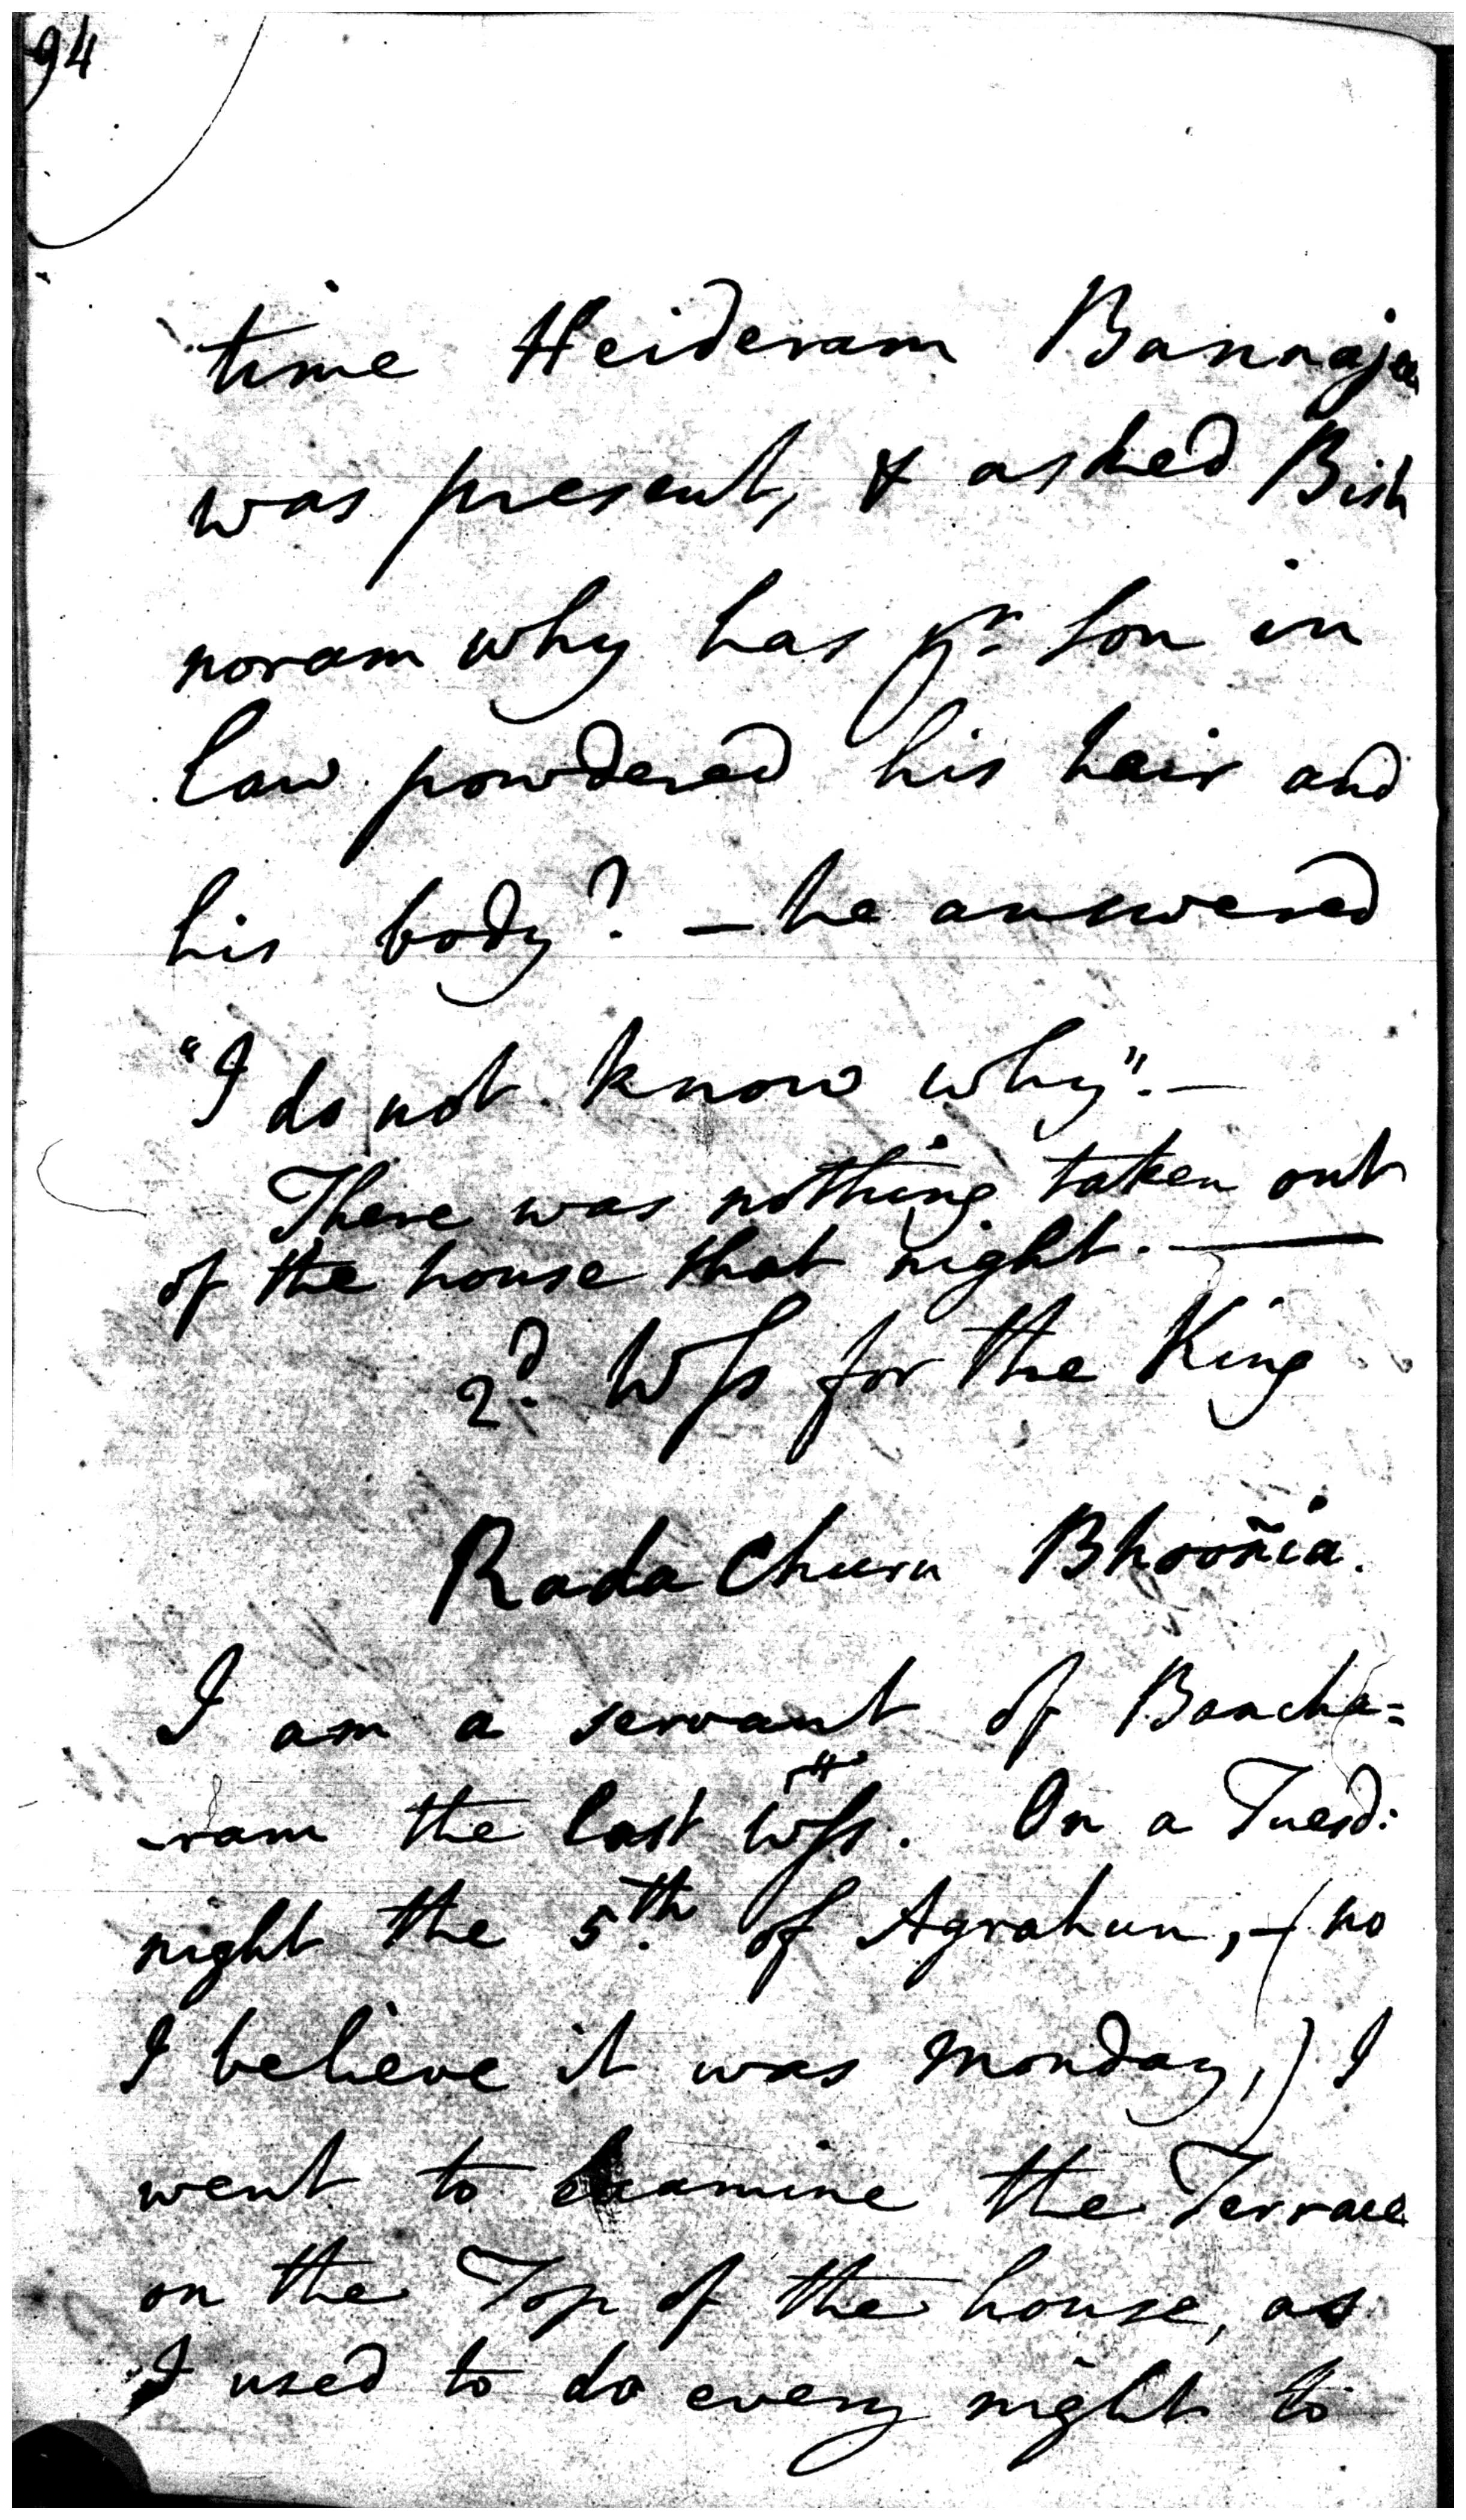 94
time Heideram Bannajee
was present, & asked Bish
noram why has yr. son in
law powdered his hair and
his body? — he answered
"I do not know why". —
There was nothing taken out
of the house that night. —
2d. Wss for the King
Rada Churn Bhooñia.
I am a servant of Bancha=
-ram the last Wss. On a Tuesd:
night the 5th. of Agrahun, — (no
I believe it was Monday,) I
went to examine the Terrace
on the Top of the house, as
I used to do every night to